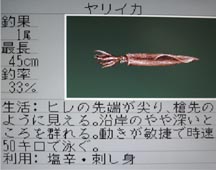 ヤリイカ
釣果
1尾
最長
45cm
釣率
33%
生活:ヒレの先端が尖り、槍先の
ように見える。沿岸のやや深いと
ころを群れる。動きが敏捷で時速
50キロで泳ぐ。
利用:塩辛・刺し身